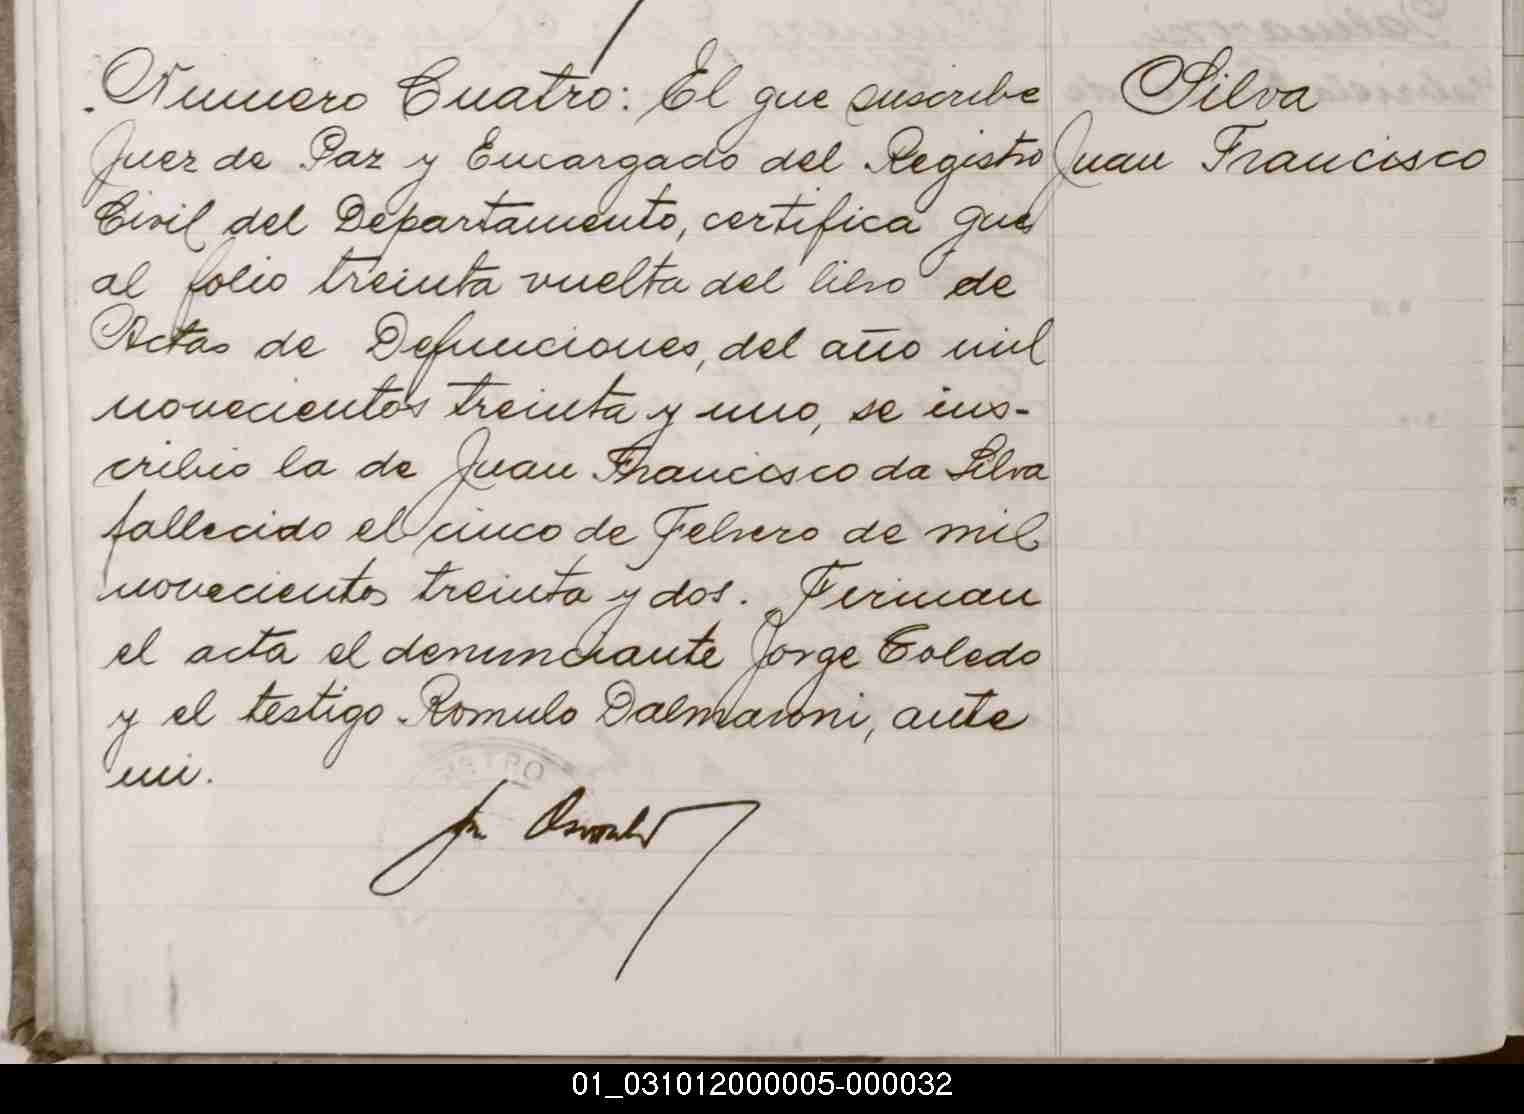 Numero Cuatro: El que suscribe
Juez de Paz y Encargado del Registro
Civil del Departamento, certifica que
al folio treinta vuelta del libro de
Actas de Defunciones, del año mil
novecientos treinta y uno, se ins-
cribio la de Juan Francisco da Silva
fallecido el cinco de Febrero de mil
novecientos treinta y dos. Firman
el acta el denunciante Jorge Toledo
y el testigo Romulo Dalmaroni, ante
mi.
Silva
Juan Francisco
01_031012000005-000032